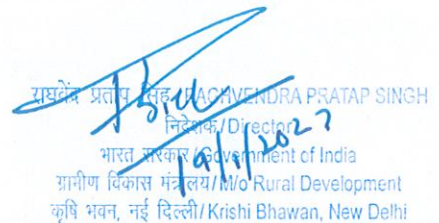 राघवेंद्र प्रताप सिंह/RAGHVENDRA PRATAP SINGH
निदेशक/Director
भारत सरकार/Government of India
ग्रामीण विकास मंत्रालय/M/o Rural Development
कृषि भवन, नई दिल्ली/Krishi Bhawan, New Delhi
19/1/2023